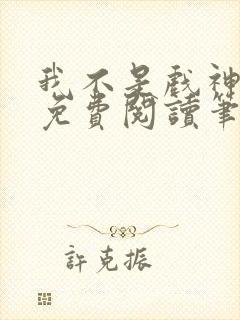 我不是戲神
免費閱讀筆
許克振